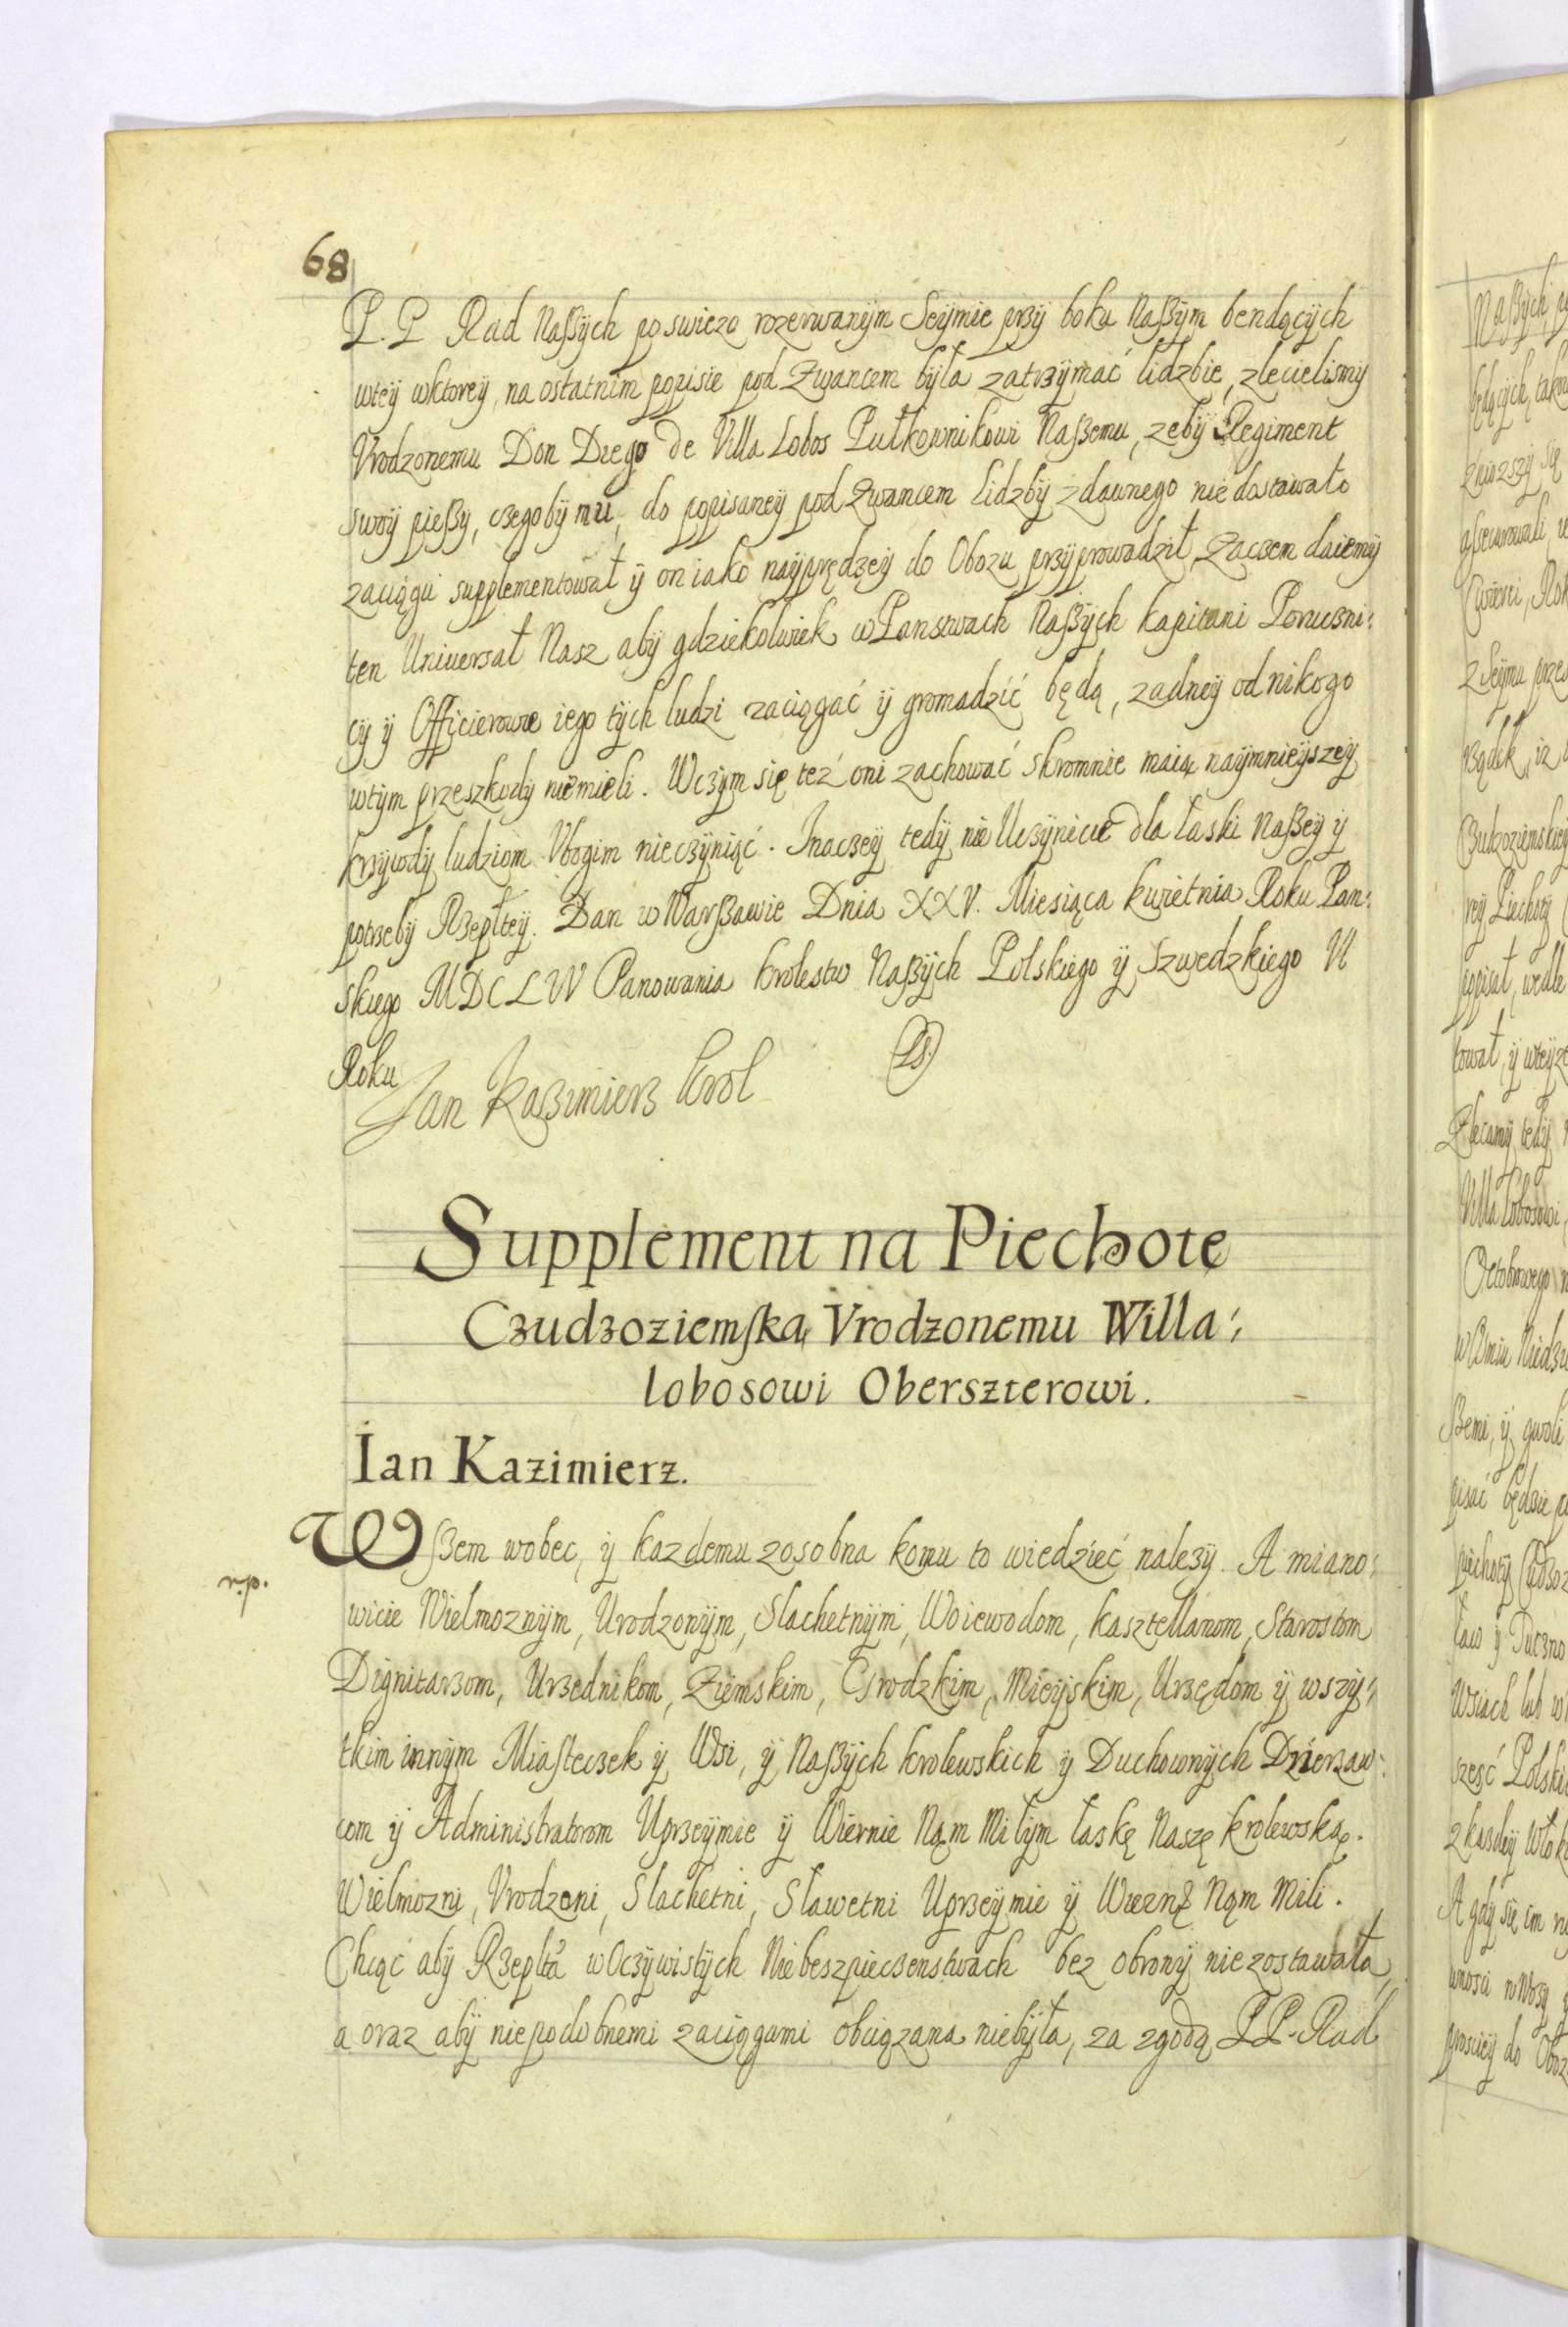 68
P. P Rad Naßÿch po swiezo rozerwanÿm Seÿmie przÿ boku Naßÿm bendącÿch
wteÿ wktoreÿ, na ostatnim popisie pod Zwancem bÿła zatrzÿmać lidzbie, zlecielismÿ
Vrodzonemu Don Diego de Villa Lobos Pułkownikowi Naßemu, zebÿ Regiment
swoÿ pießÿ, czegobÿ mu, do popisaneÿ pod Zwancem lidzbÿ zdawnego nie dostawało
zaciągu supplementował ÿ on iako naÿprędzeÿ do Obozu przÿprowadził, Zaczem daiemÿ
ten Uniwersał Nasz abÿ gdziekolwiek w Panstwach Naßÿch kapitani Poruczni:
cÿ ÿ Officierowie iego tÿch ludzi zaciągać ÿ gromadzić będą, zadneÿ od nikogo
wtÿm przeszkodÿ niemieli. Wczÿm się też oni zachować skromnie maią naÿmnieÿszeÿ
krzÿwdÿ ludziom Vbogim nieczÿniąć. Inaczeÿ tedÿ nie Uczÿnicie dla łaski Naßeÿ ÿ
potrzebÿ Rzepłteÿ. Dan w Warßawie Dnia XXV. Miesiąca kwietnia Roku Pan:
skiego MDCLIV Panowania krolestw Naßÿch Polskiego ÿ Szwedzkiego VI
Roku
Jan Kazimierz Krol
(Ls)
Supplement na Piechotę
Czudzoziemſką Vrodzonemu Willa:
lobosowi Oberszterowi.
Ian Kazimierz.
Wßem wobec, ÿ kazdemu zosobna komu to wiedzieć nalezÿ. A miano:
wicie Wielmoznÿm, Urodzonÿm, Slachetnÿm, Woiewodom, kasztellanom, Starostom
Dignitarzom, Urzednikom, Ziemskim, Grodzkim, Mieÿskim, Urzędom ÿ wszÿ:
tkim innÿm Miasteczek ÿ Wsi, ÿ Naßÿch krolewskich ÿ Duchownÿch Dzierzaw:
com ÿ Administratorom Uprzeÿmie ÿ Wiernie Nąm Miłÿm łaskę Naszę krolewską.
Wielmozni, Vrodzeni, Slachetni, Sławetni Uprzeÿmie ÿ Wiernie Nąm Mili.
Chcąć abÿ Rzeplta wOczÿwistÿch Niebeszpieczenstwach bez obronÿ niezostawała,
a oraz abÿ niepodobnemi zaciągami obciązana niebÿła, za zgodą P P. Rad